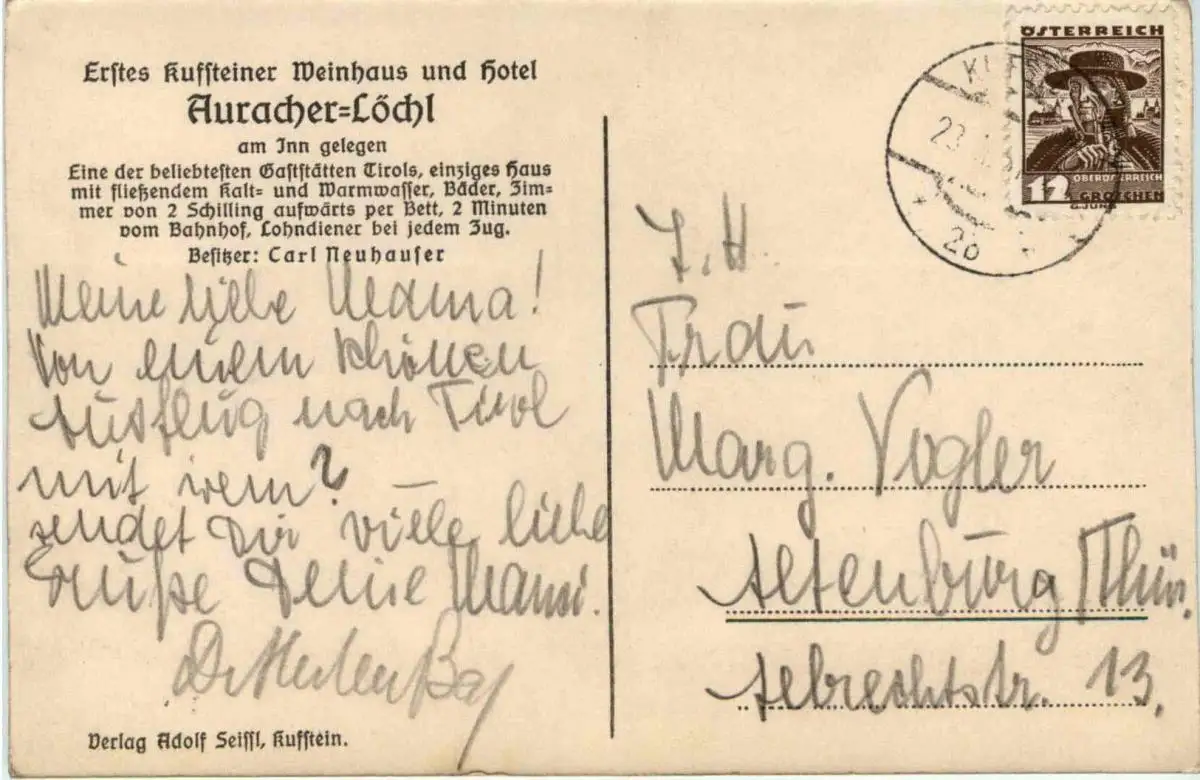 Erstes Kufsteiner Weinhaus und Hotel
Auracher=Löchl
am Inn gelegen
Eine der beliebtesten Gaststätten Tirols, einziges Haus
mit fließendem Kalt= und Warmwasser, Bäder, Zim=
mer von 2 Schilling aufwärts per Bett, 2 Minuten
vom Bahnhof, Lohndiener bei jedem Zug.
Besitzer: Carl Neuhauser
Meine liebe Mama!
Von einem schönen
Ausflug nach Tirol
mit wem? –
sendet Dir viele liebe
Grüße Deine
Verlag Adolf Seissl, Kufstein.
ÖSTERREICH
OBERÖSTERREICH
12 GROSCHEN
G.JUNG
23
2b
I. H.
Frau
Marg. Vogler
Altenburg/Thür.
Albrechtstr. 13.